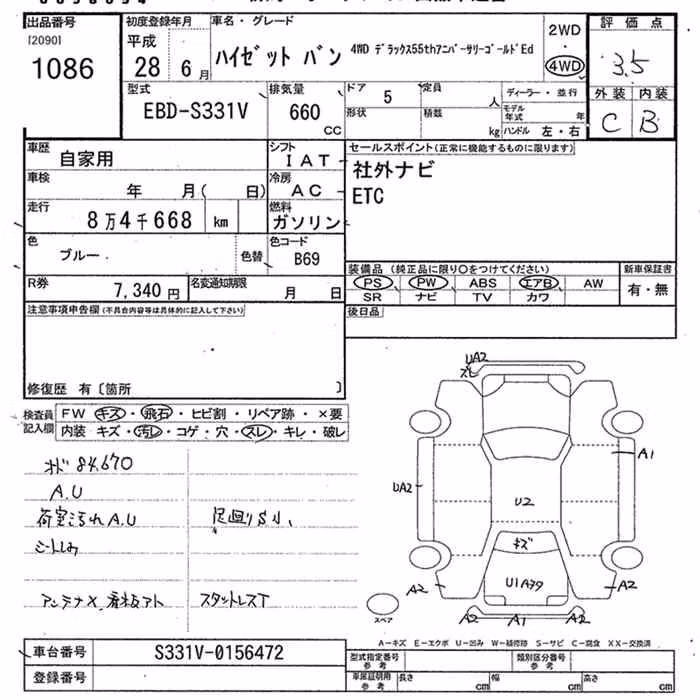 出品番号
[2090]
1086
初度登録年月
平成
28 6月
車名・グレード
ハイゼット バン 4WD デラックス55thアニバーサリーゴールドEd
2WD
・
4WD
評価点
3.5
外装 内装
C B
型式
EBD-S331V
排気量
660
CC
ドア 5
定員 人
形状
積類 kg
ディーラー・並行
モデル年式 年
ハンドル 左・右
車歴 自家用
シフト IAT
車検 年 月( 日)
冷房 AC
走行 8万4千668 km
燃料 ガソリン
色 ブルー 色替
色コード B69
R券 7,340円
名変通知期限 月 日
セールスポイント(正常に機能するものに限ります)
社外ナビ
ETC
装備品 (純正品に限り〇をつけてください)
新車保証書
PS PW ABS エアB AW
有・無
SR ナビ TV カワ
後日品
注意事項申告欄 (不具合内容等は具体的に記入して下さい)
修復歴 有〔箇所 〕
検査員記入欄
FW キズ・飛石・ヒビ割・リペア跡・×要
内装 キズ・汚レ・コゲ・穴・スレ・キレ・破レ
オド 84,670
A.U
荷室汚れA.U
シートしみ
アンテナX 看板アト
足廻りS小
スタットレスT
UA2
ズレ
A1
UA2
U2
キズ
U1A79
A2
A2
スペア
A2 A1 A2
A-キズ E-エクボ U-凹み W-補修跡 S-サビ C-腐食 XX-交換済
車台番号 S331V-0156472
登録番号
型式指定番号
参考
類別区分番号
参考
車庫証明用
参考
長さ cm
幅 cm
高さ cm